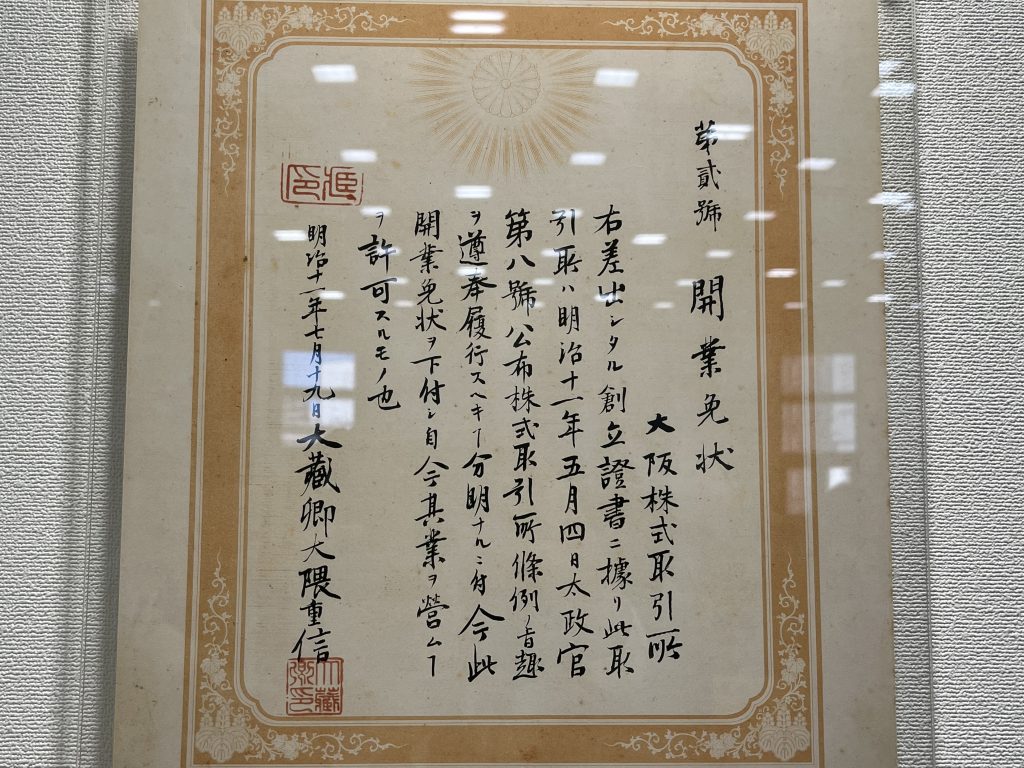 第貳號 開業免状
大阪株式取引所
右差出シタル創立證書ニ據リ此取
引所ハ明治十一年五月四日太政官
第八號公布株式取引所條例ノ旨趣
ヲ遵奉履行スヘキヿ分明ナルニ付今此
開業免状ヲ下付シ自今其業ヲ營ムヿ
ヲ許可スルモノ也
明治十一年七月十九日大藏卿大隈重信
大藏卿印